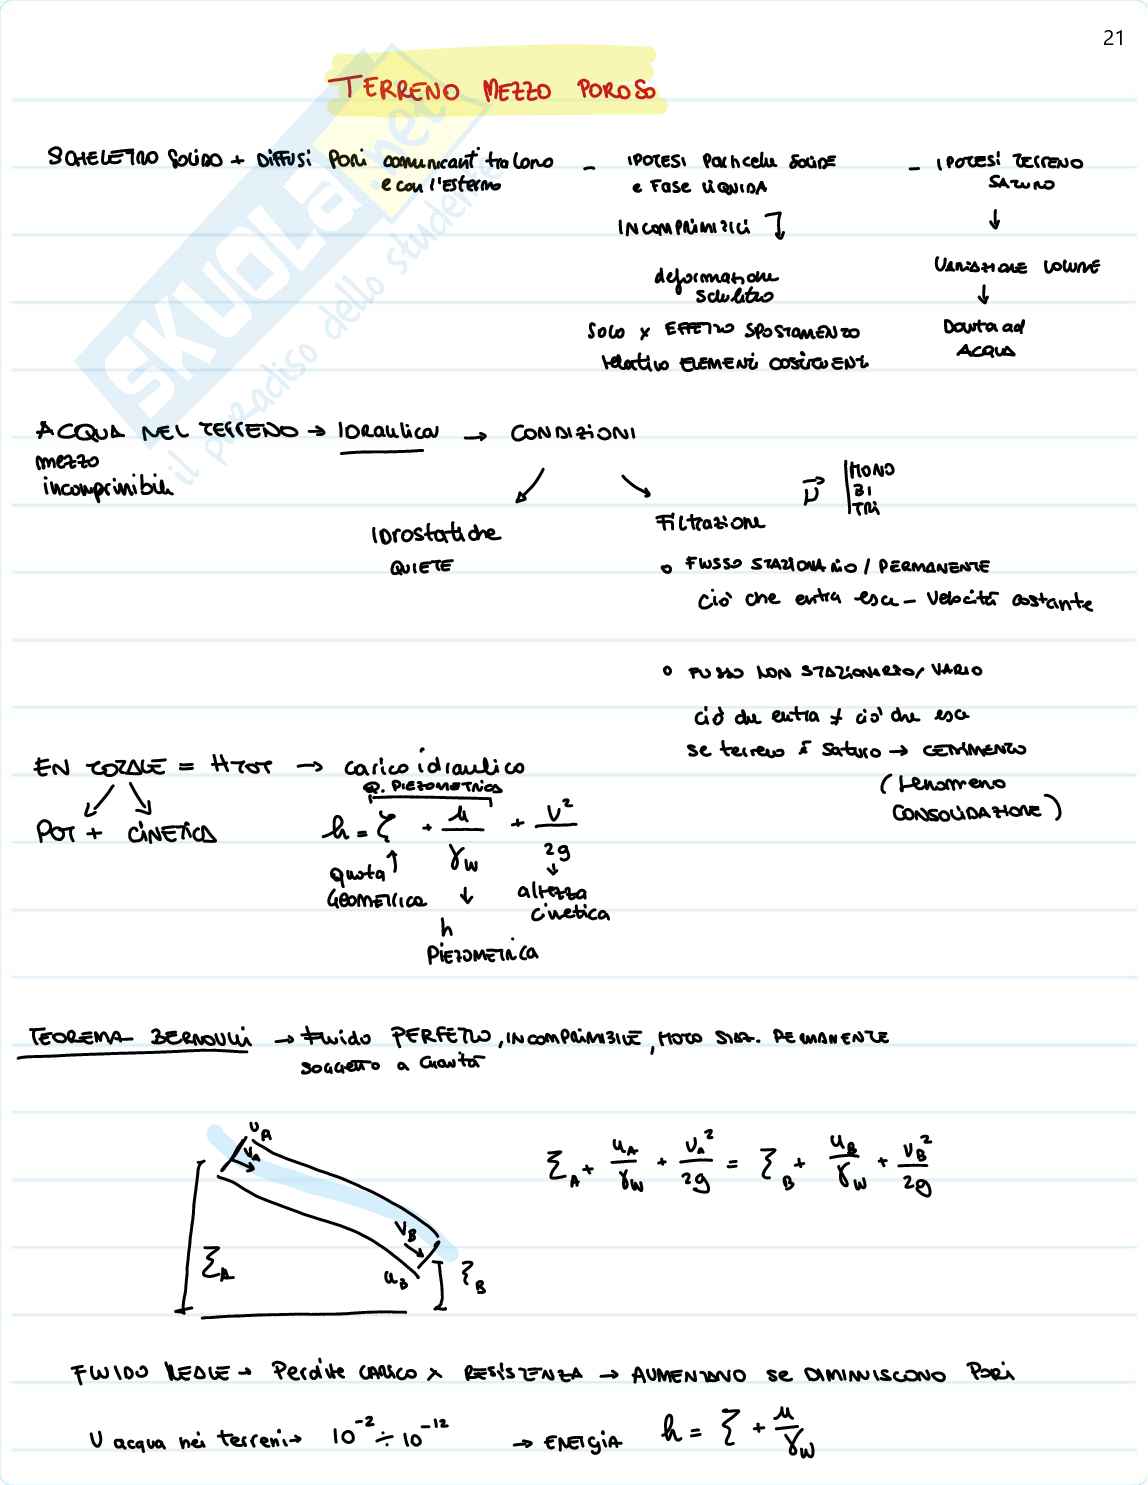 21
TERRENO MEZZO POROSO
SCHELETRO SOLIDO + DIFFUSI PORI comunicanti tra loro
e con l'Esterno
- IPOTESI Particelle SOLIDE
e FASE LIQUIDA
INCOMPRIMIBILI
deformazione
scheletro
SOLO x EFFETTO SPOSTAMENTO
relativo ELEMENTI COSTITUENTI
- IPOTESI TERRENO
SATURO
↓
VARIAZIONE VOLUME
↓
Dovuta ad
ACQUA
ACQUA NEL TERRENO → IDRAULICA → CONDIZIONI
mezzo
incomprimibile
IDROSTATICHE
QUIETE
FILTRAZIONE
MONO
BI
TRI
o FLUSSO STAZIONARIO / PERMANENTE
ciò che entra esce - Velocità costante
o FLUSSO NON STAZIONARIO / VARIO
ciò che entra ≠ ciò che esce
se terreno È Saturo → CEDIMENTO
(fenomeno
CONSOLIDAZIONE)
EN TOTALE = HTOT → carico idraulico
POT + CINETICA
Q. PIEZOMETRICA
h = ζ + u/γw + v²/2g
quota
GEOMETRICA
h
PIEZOMETRICA
altezza
cinetica
TEOREMA BERNOULLI → Fluido PERFETTO, INCOMPRIMIBILE, MOTO STAZ. PERMANENTE
SOGGETTO a Gravità
uA
vA
vB
uB
ζA
ζB
ζA + uA/γw + vA²/2g = ζB + uB/γw + vB²/2g
FLUIDO REALE → Perdite CARICO x RESISTENZA → AUMENTANO se DIMINUISCONO PORI
V acqua nei terreni → 10⁻² ÷ 10⁻¹² → ENERGIA h = ζ + u/γw
SKUOLA.net
il paradiso dello studente